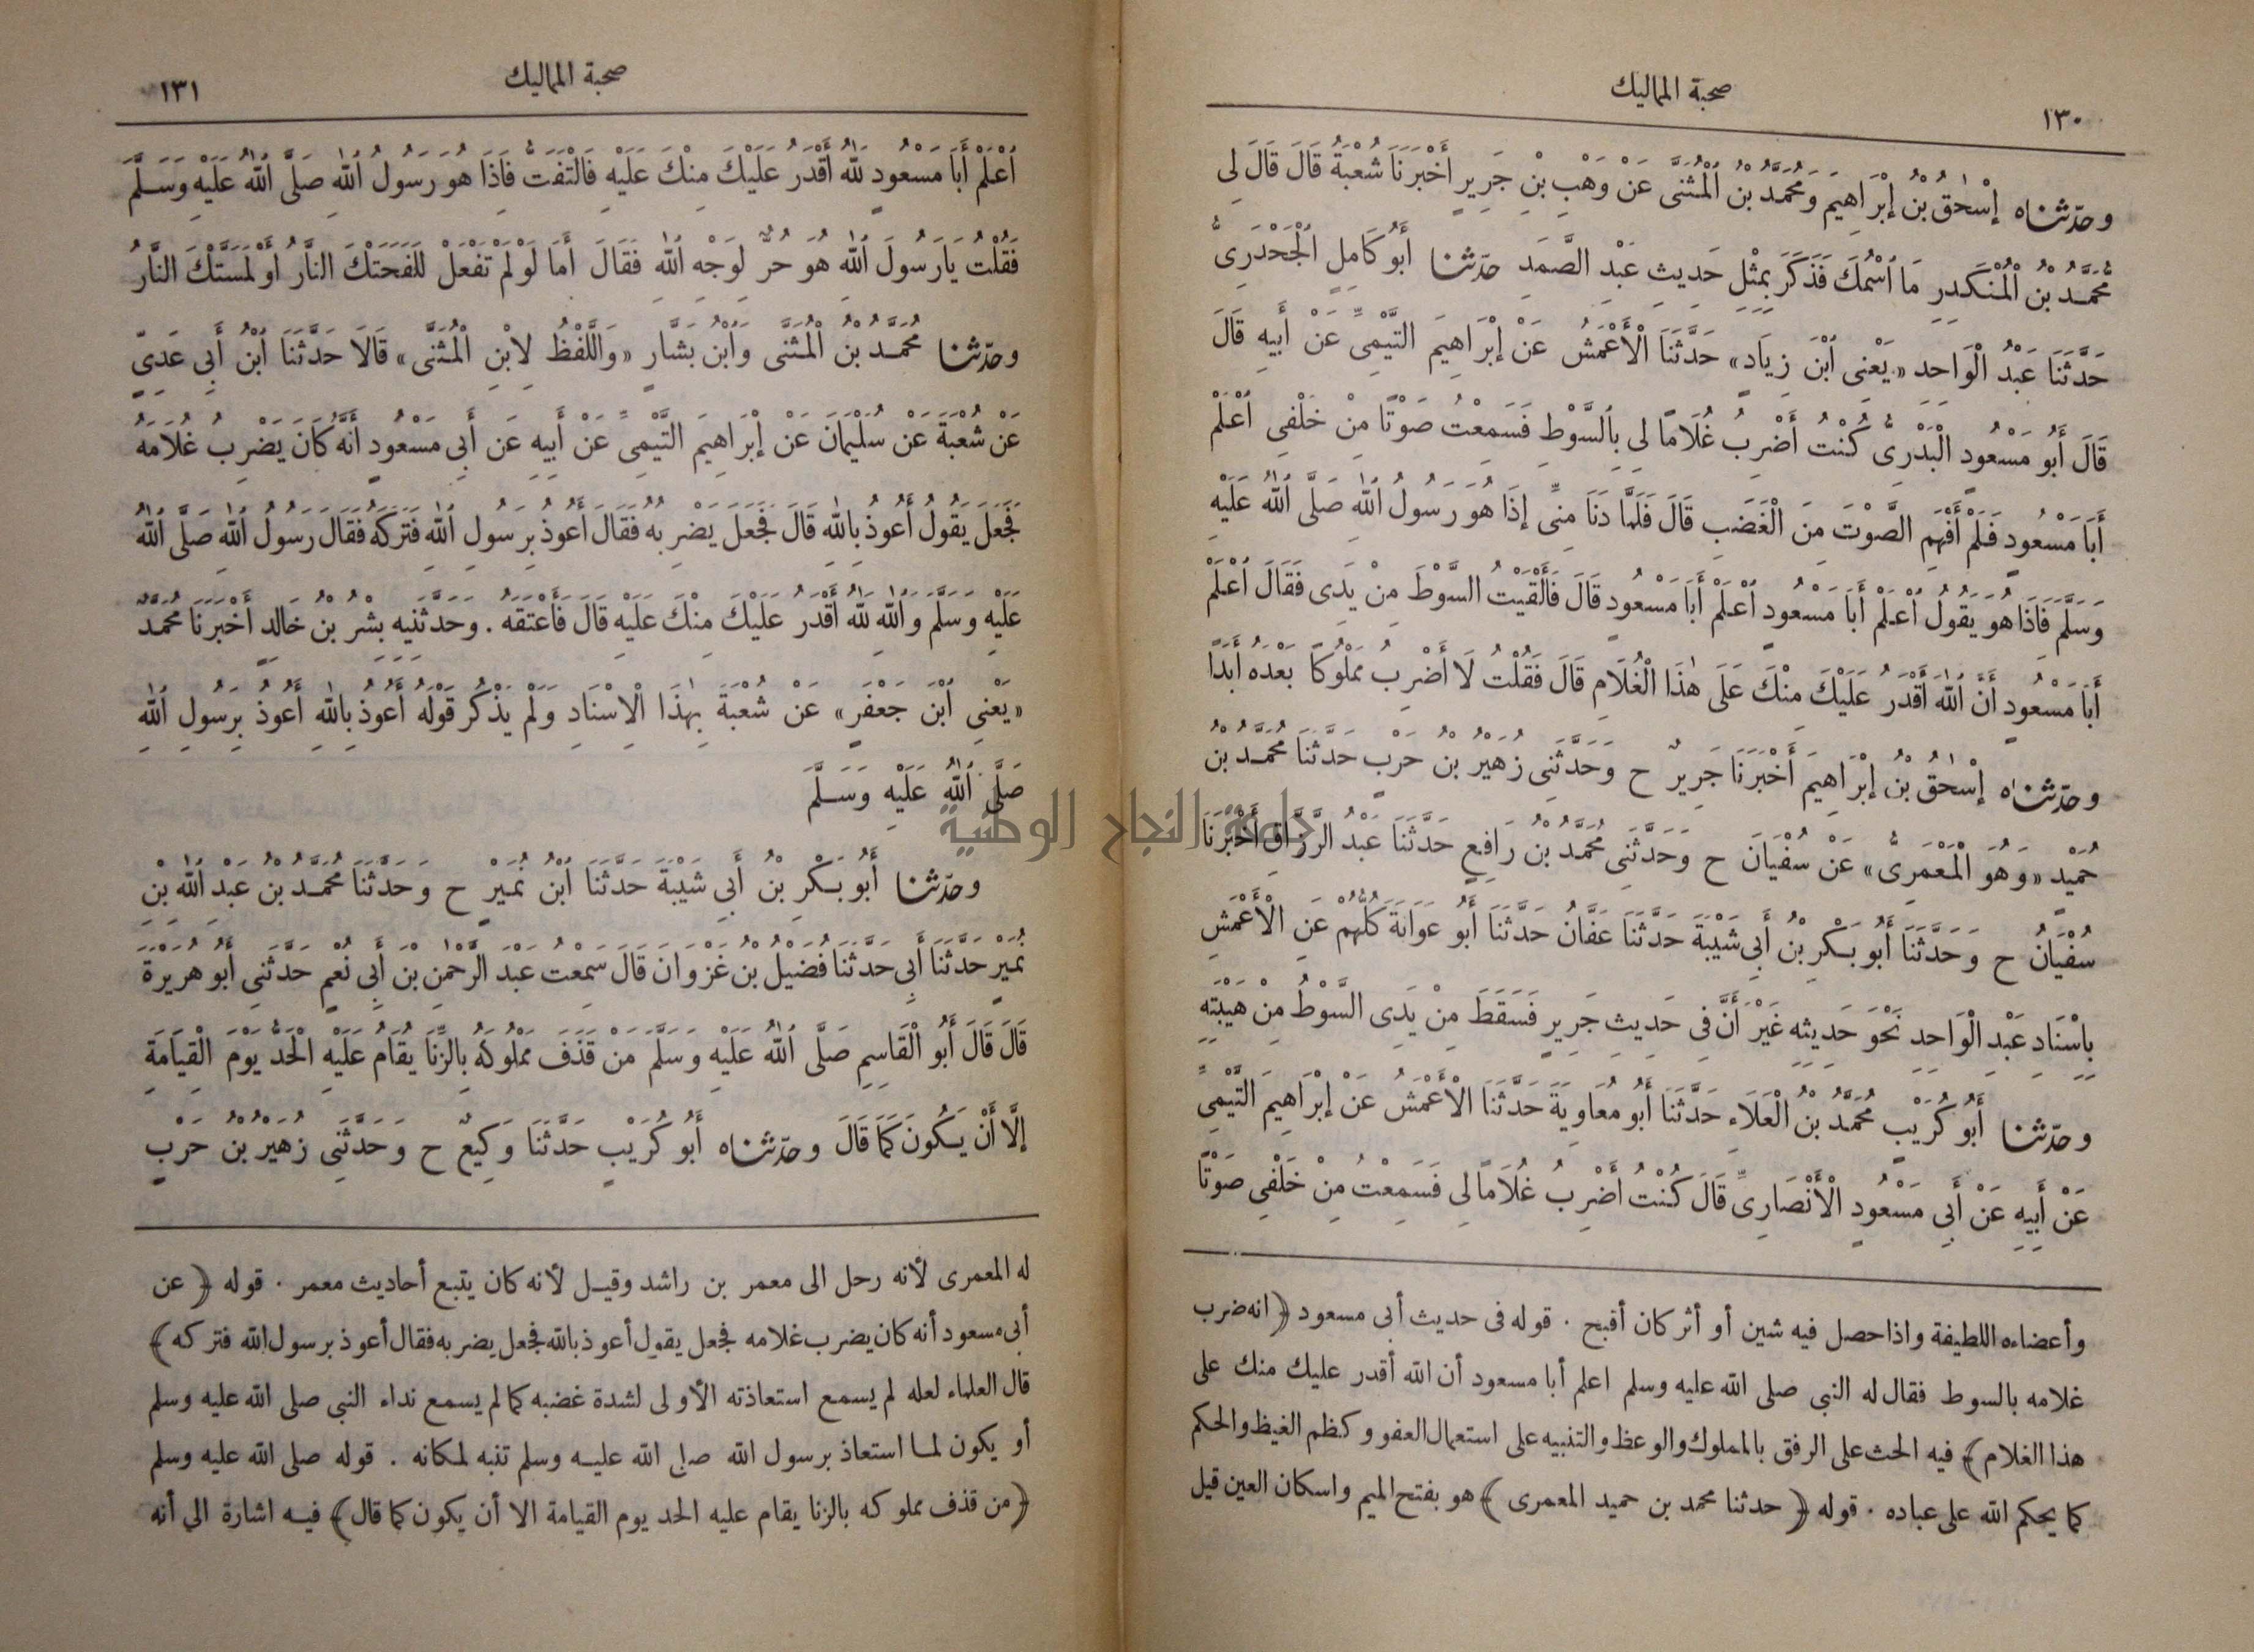 صحبة المماليك
١٣٠
وحدثناه إِسْحٰقُ بْنُ إِبْرَاهِيمَ وَمُحَمَّدُ بْنُ الْمُثَنَّى عَنْ وَهْبِ بْنِ جَرِيرٍ أَخْبَرَنَا شُعْبَةُ قَالَ قَالَ لِى
مُحَمَّدُ بْنُ الْمُنْكَدِرِ مَا اسْمُكَ فَذَكَرَ بِمِثْلِ حَدِيثِ عَبْدِ الصَّمَدِ حدثنا أَبُو كَامِلٍ الْجَحْدَرِىُّ
حَدَّثَنَا عَبْدُ الْوَاحِدِ «يَعْنِى ابْنَ زِيَادٍ» حَدَّثَنَا الْأَعْمَشُ عَنْ إِبْرَاهِيمَ التَّيْمِىِّ عَنْ أَبِيهِ قَالَ
قَالَ أَبُو مَسْعُودٍ الْبَدْرِىُّ كُنْتُ أَضْرِبُ غُلَامًا لِى بِالسَّوْطِ فَسَمِعْتُ صَوْتًا مِنْ خَلْفِى اعْلَمْ
أَبَا مَسْعُودٍ فَلَمْ أَفْهَمِ الصَّوْتَ مِنَ الْغَضَبِ قَالَ فَلَمَّا دَنَا مِنِّى إِذَا هُوَ رَسُولُ اللهِ صَلَّى اللهُ عَلَيْهِ
وَسَلَّمَ فَإِذَا هُوَ يَقُولُ اعْلَمْ أَبَا مَسْعُودٍ اعْلَمْ أَبَا مَسْعُودٍ قَالَ فَأَلْقَيْتُ السَّوْطَ مِنْ يَدِى فَقَالَ اعْلَمْ
أَبَا مَسْعُودٍ أَنَّ اللهَ أَقْدَرُ عَلَيْكَ مِنْكَ عَلَى هٰذَا الْغُلَامِ قَالَ فَقُلْتُ لَا أَضْرِبُ مَمْلُوكًا بَعْدَهُ أَبَدًا
وحدثناه إِسْحٰقُ بْنُ إِبْرَاهِيمَ أَخْبَرَنَا جَرِيرٌ ح وَحَدَّثَنِى زُهَيْرُ بْنُ حَرْبٍ حَدَّثَنَا مُحَمَّدُ بْنُ
حُمَيْدٍ «وَهُوَ الْمَعْمَرِىُّ» عَنْ سُفْيَانَ ح وَحَدَّثَنِى مُحَمَّدُ بْنُ رَافِعٍ حَدَّثَنَا عَبْدُ الرَّزَّاقِ أَخْبَرَنَا
سُفْيَانُ ح وَحَدَّثَنَا أَبُو بَكْرِ بْنُ أَبِى شَيْبَةَ حَدَّثَنَا عَفَّانُ حَدَّثَنَا أَبُو عَوَانَةَ كُلُّهُمْ عَنِ الْأَعْمَشِ
بِإِسْنَادِ عَبْدِ الْوَاحِدِ نَحْوَ حَدِيثِهِ غَيْرَ أَنَّ فِى حَدِيثِ جَرِيرٍ فَسَقَطَ مِنْ يَدِى السَّوْطُ مِنْ هَيْبَتِهِ
وحدثنا أَبُو كُرَيْبٍ مُحَمَّدُ بْنُ الْعَلَاءِ حَدَّثَنَا أَبُو مُعَاوِيَةَ حَدَّثَنَا الْأَعْمَشُ عَنْ إِبْرَاهِيمَ التَّيْمِىِّ
عَنْ أَبِيهِ عَنْ أَبِى مَسْعُودٍ الْأَنْصَارِىِّ قَالَ كُنْتُ أَضْرِبُ غُلَامًا لِى فَسَمِعْتُ مِنْ خَلْفِى صَوْتًا
وأعضاءه اللطيفة واذا حصل فيه شين أو أثر كان أقبح . قوله فى حديث أبى مسعود ﴿انه ضرب
غلامه بالسوط فقال له النبى صلى الله عليه وسلم اعلم أبا مسعود أن الله أقدر عليك منك على
هذا الغلام﴾ فيه الحث على الرفق بالمملوك والوعظ والتنبيه على استعمال العفو وكظم الغيظ والحكم
كما يحكم الله على عباده . قوله ﴿حدثنا محمد بن حميد المعمرى﴾ هو بفتح الميم واسكان العين قيل
صحبة المماليك
١٣١
اعْلَمْ أَبَا مَسْعُودٍ لَلّٰهُ أَقْدَرُ عَلَيْكَ مِنْكَ عَلَيْهِ فَالْتَفَتُّ فَإِذَا هُوَ رَسُولُ اللهِ صَلَّى اللهُ عَلَيْهِ وَسَلَّمَ
فَقُلْتُ يَا رَسُولَ اللهِ هُوَ حُرٌّ لِوَجْهِ اللهِ فَقَالَ أَمَا لَوْ لَمْ تَفْعَلْ لَلَفَحَتْكَ النَّارُ أَوْ لَمَسَّتْكَ النَّارُ
وحدثنا مُحَمَّدُ بْنُ الْمُثَنَّى وَابْنُ بَشَّارٍ «وَاللَّفْظُ لِابْنِ الْمُثَنَّى» قَالَا حَدَّثَنَا ابْنُ أَبِى عَدِىٍّ
عَنْ شُعْبَةَ عَنْ سُلَيْمَانَ عَنْ إِبْرَاهِيمَ التَّيْمِىِّ عَنْ أَبِيهِ عَنْ أَبِى مَسْعُودٍ أَنَّهُ كَانَ يَضْرِبُ غُلَامَهُ
فَجَعَلَ يَقُولُ أَعُوذُ بِاللهِ قَالَ فَجَعَلَ يَضْرِبُهُ فَقَالَ أَعُوذُ بِرَسُولِ اللهِ فَتَرَكَهُ فَقَالَ رَسُولُ اللهِ صَلَّى اللهُ
عَلَيْهِ وَسَلَّمَ وَاللهِ لَلّٰهُ أَقْدَرُ عَلَيْكَ مِنْكَ عَلَيْهِ قَالَ فَأَعْتَقَهُ . وَحَدَّثَنِيهِ بِشْرُ بْنُ خَالِدٍ أَخْبَرَنَا مُحَمَّدٌ
«يَعْنِى ابْنَ جَعْفَرٍ» عَنْ شُعْبَةَ بِهٰذَا الْإِسْنَادِ وَلَمْ يَذْكُرْ قَوْلَهُ أَعُوذُ بِاللهِ أَعُوذُ بِرَسُولِ اللهِ
صَلَّى اللهُ عَلَيْهِ وَسَلَّمَ
جامعة النجاح الوطنية
وحدثنا أَبُو بَكْرِ بْنُ أَبِى شَيْبَةَ حَدَّثَنَا ابْنُ نُمَيْرٍ ح وَحَدَّثَنَا مُحَمَّدُ بْنُ عَبْدِ اللهِ بْنِ
نُمَيْرٍ حَدَّثَنَا أَبِى حَدَّثَنَا فُضَيْلُ بْنُ غَزْوَانَ قَالَ سَمِعْتُ عَبْدَ الرَّحْمٰنِ بْنَ أَبِى نُعْمٍ حَدَّثَنِى أَبُو هُرَيْرَةَ
قَالَ قَالَ أَبُو الْقَاسِمِ صَلَّى اللهُ عَلَيْهِ وَسَلَّمَ مَنْ قَذَفَ مَمْلُوكَهُ بِالزِّنَا يُقَامُ عَلَيْهِ الْحَدُّ يَوْمَ الْقِيَامَةِ
إِلَّا أَنْ يَكُونَ كَمَا قَالَ وحدثناه أَبُو كُرَيْبٍ حَدَّثَنَا وَكِيعٌ ح وَحَدَّثَنِى زُهَيْرُ بْنُ حَرْبٍ
له المعمرى لأنه رحل الى معمر بن راشد وقيل لأنه كان يتبع أحاديث معمر . قوله ﴿عن
أبى مسعود أنه كان يضرب غلامه فجعل يقول أعوذ بالله فجعل يضربه فقال أعوذ برسول الله فتركه﴾
قال العلماء لعله لم يسمع استعاذته الأولى لشدة غضبه كما لم يسمع نداء النبى صلى الله عليه وسلم
أو يكون لما استعاذ برسول الله صلى الله عليه وسلم تنبه لمكانه . قوله صلى الله عليه وسلم
﴿من قذف مملوكه بالزنا يقام عليه الحد يوم القيامة الا أن يكون كما قال﴾ فيه اشارة الى أنه